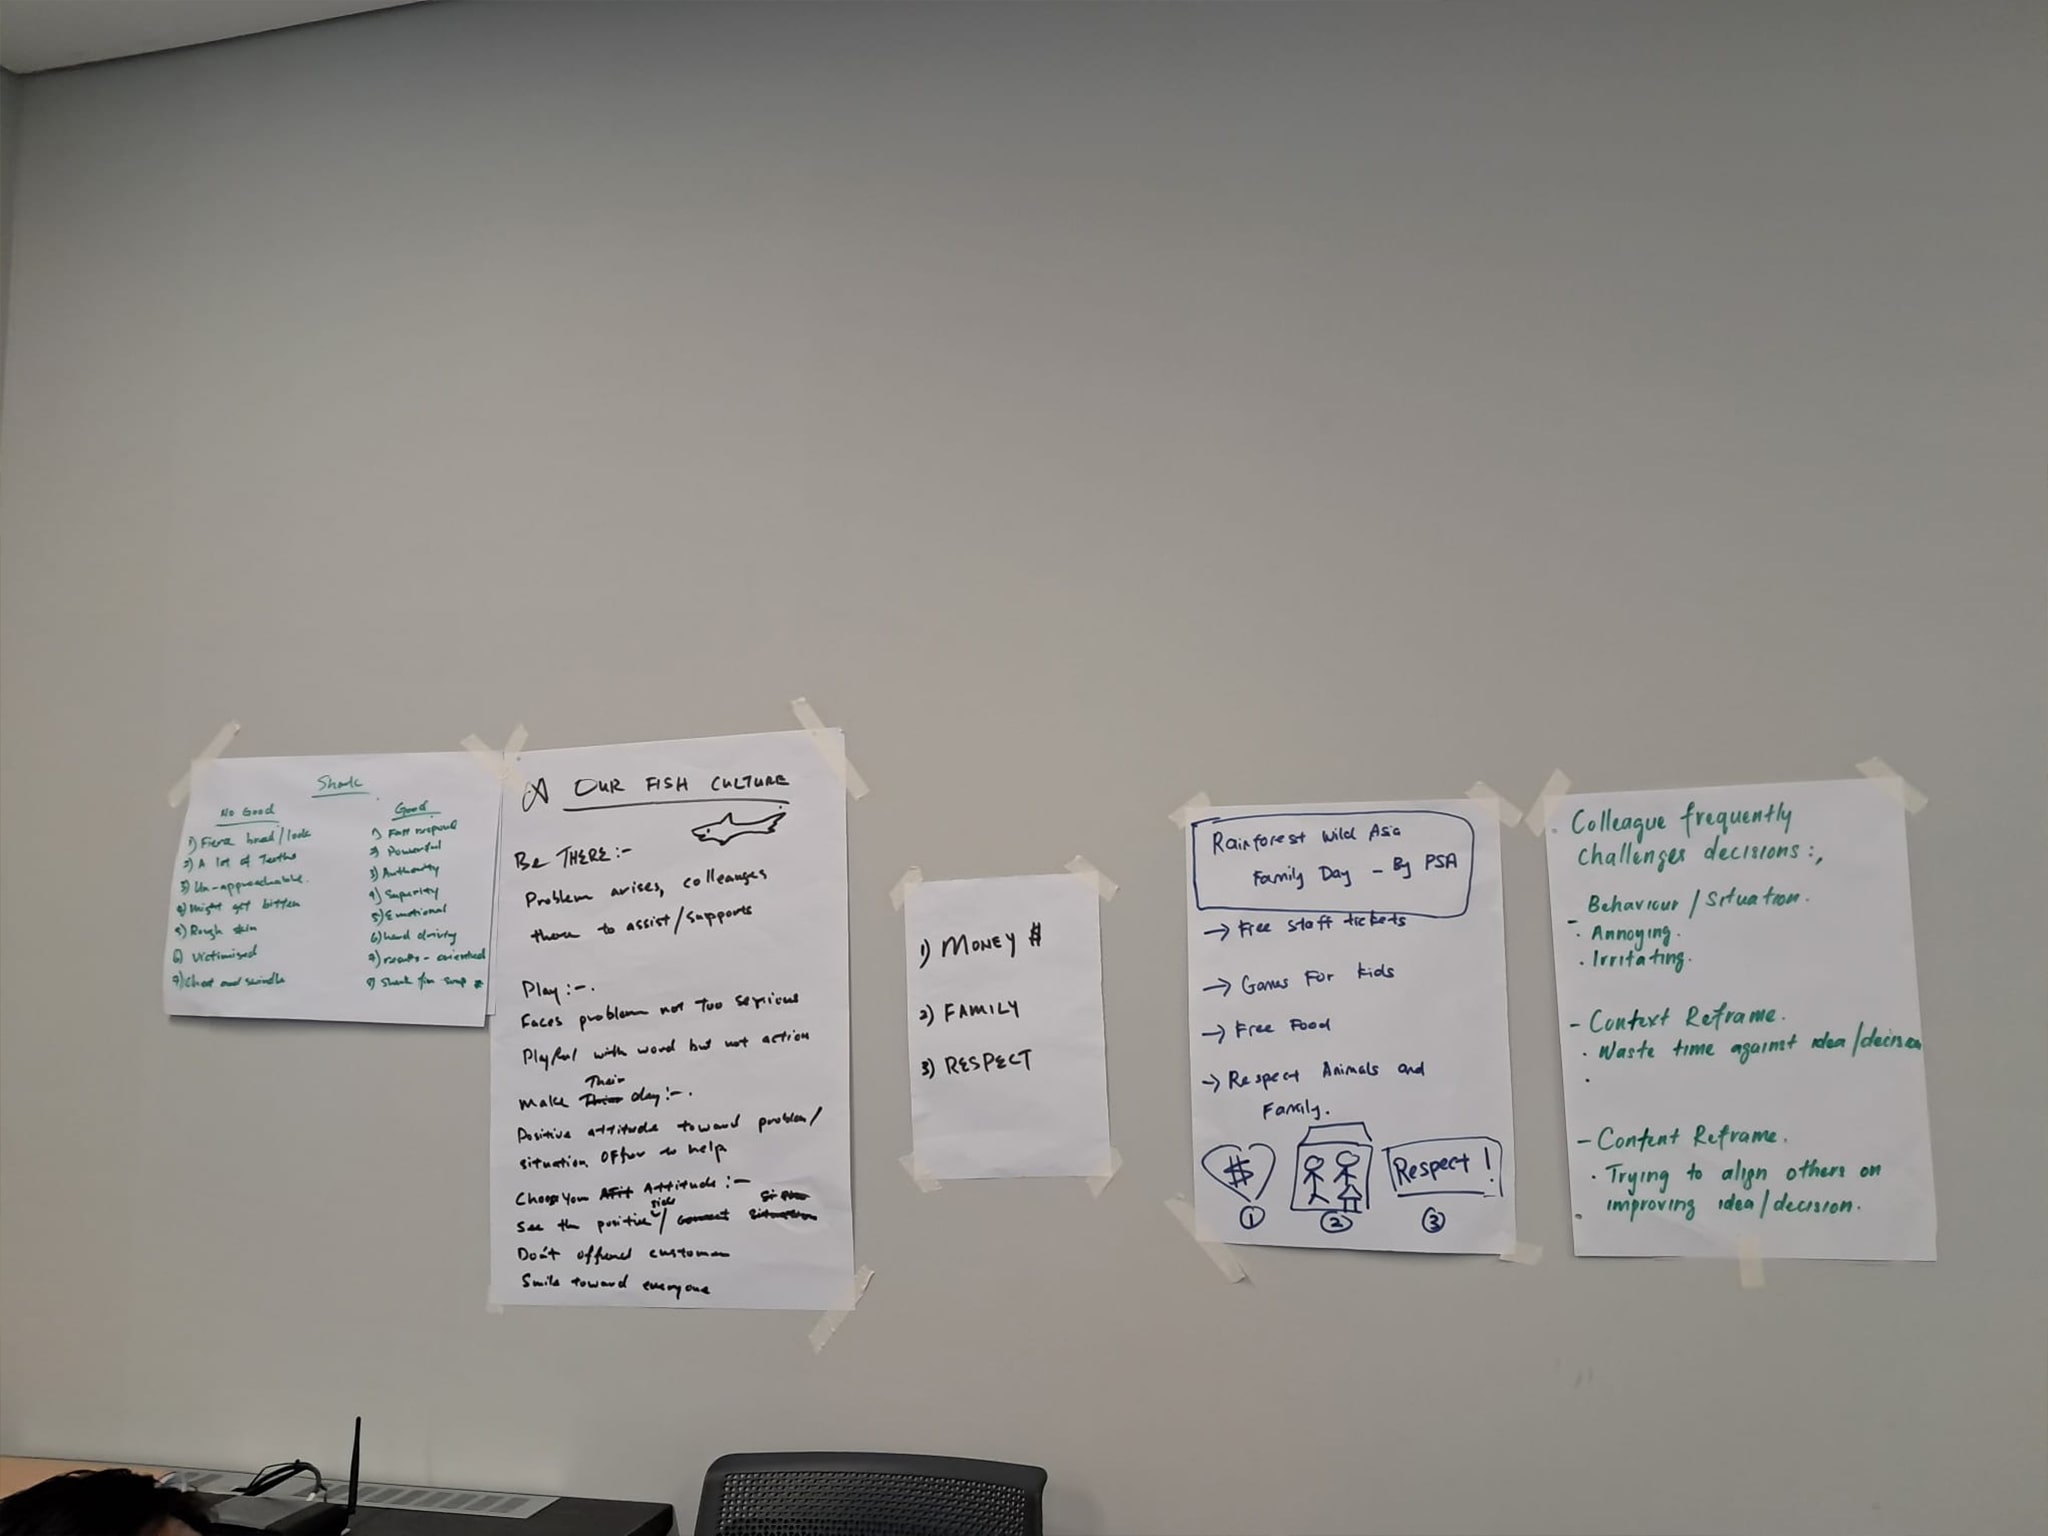 Shark
No Good
1) Fierce bread/look
2) A lot of Teeths
3) Un-approachable.
4) Might get bitten
5) Rough skin
6) Victimised
7) Cheat and swindle
Good
1) Fast respond
2) Powerful
3) Authority
4) Superity
5) Emotional
6) hard driving
7) results-orientied
8) Shark fin soup
OUR FISH CULTURE
Be THERE:-
Problem arises, colleauges
there to assist/supports
Play:-.
Faces problem not too serious
Playful with word but not action
Their
make day:-.
Positive attitude toward problem/
situation offer to help
Choose you Attitude:-
side
see the positive/
Don't offend customer
Smile toward everyone
1) MONEY $
2) FAMILY
3) RESPECT
Rainforest Wild Asia
Family Day - By PSA
→ Free staff tickets
→ Games For kids
→ Free Food
→ Respect Animals and
Family.
$
Respect!
① ② ③
Colleague frequently
challenges decisions:,
- Behaviour/Situation.
· Annoying.
· Irritating.
- Context Reframe.
· Waste time against idea/decision
·
- Content Reframe.
· Trying to align others on
improving idea/decision.